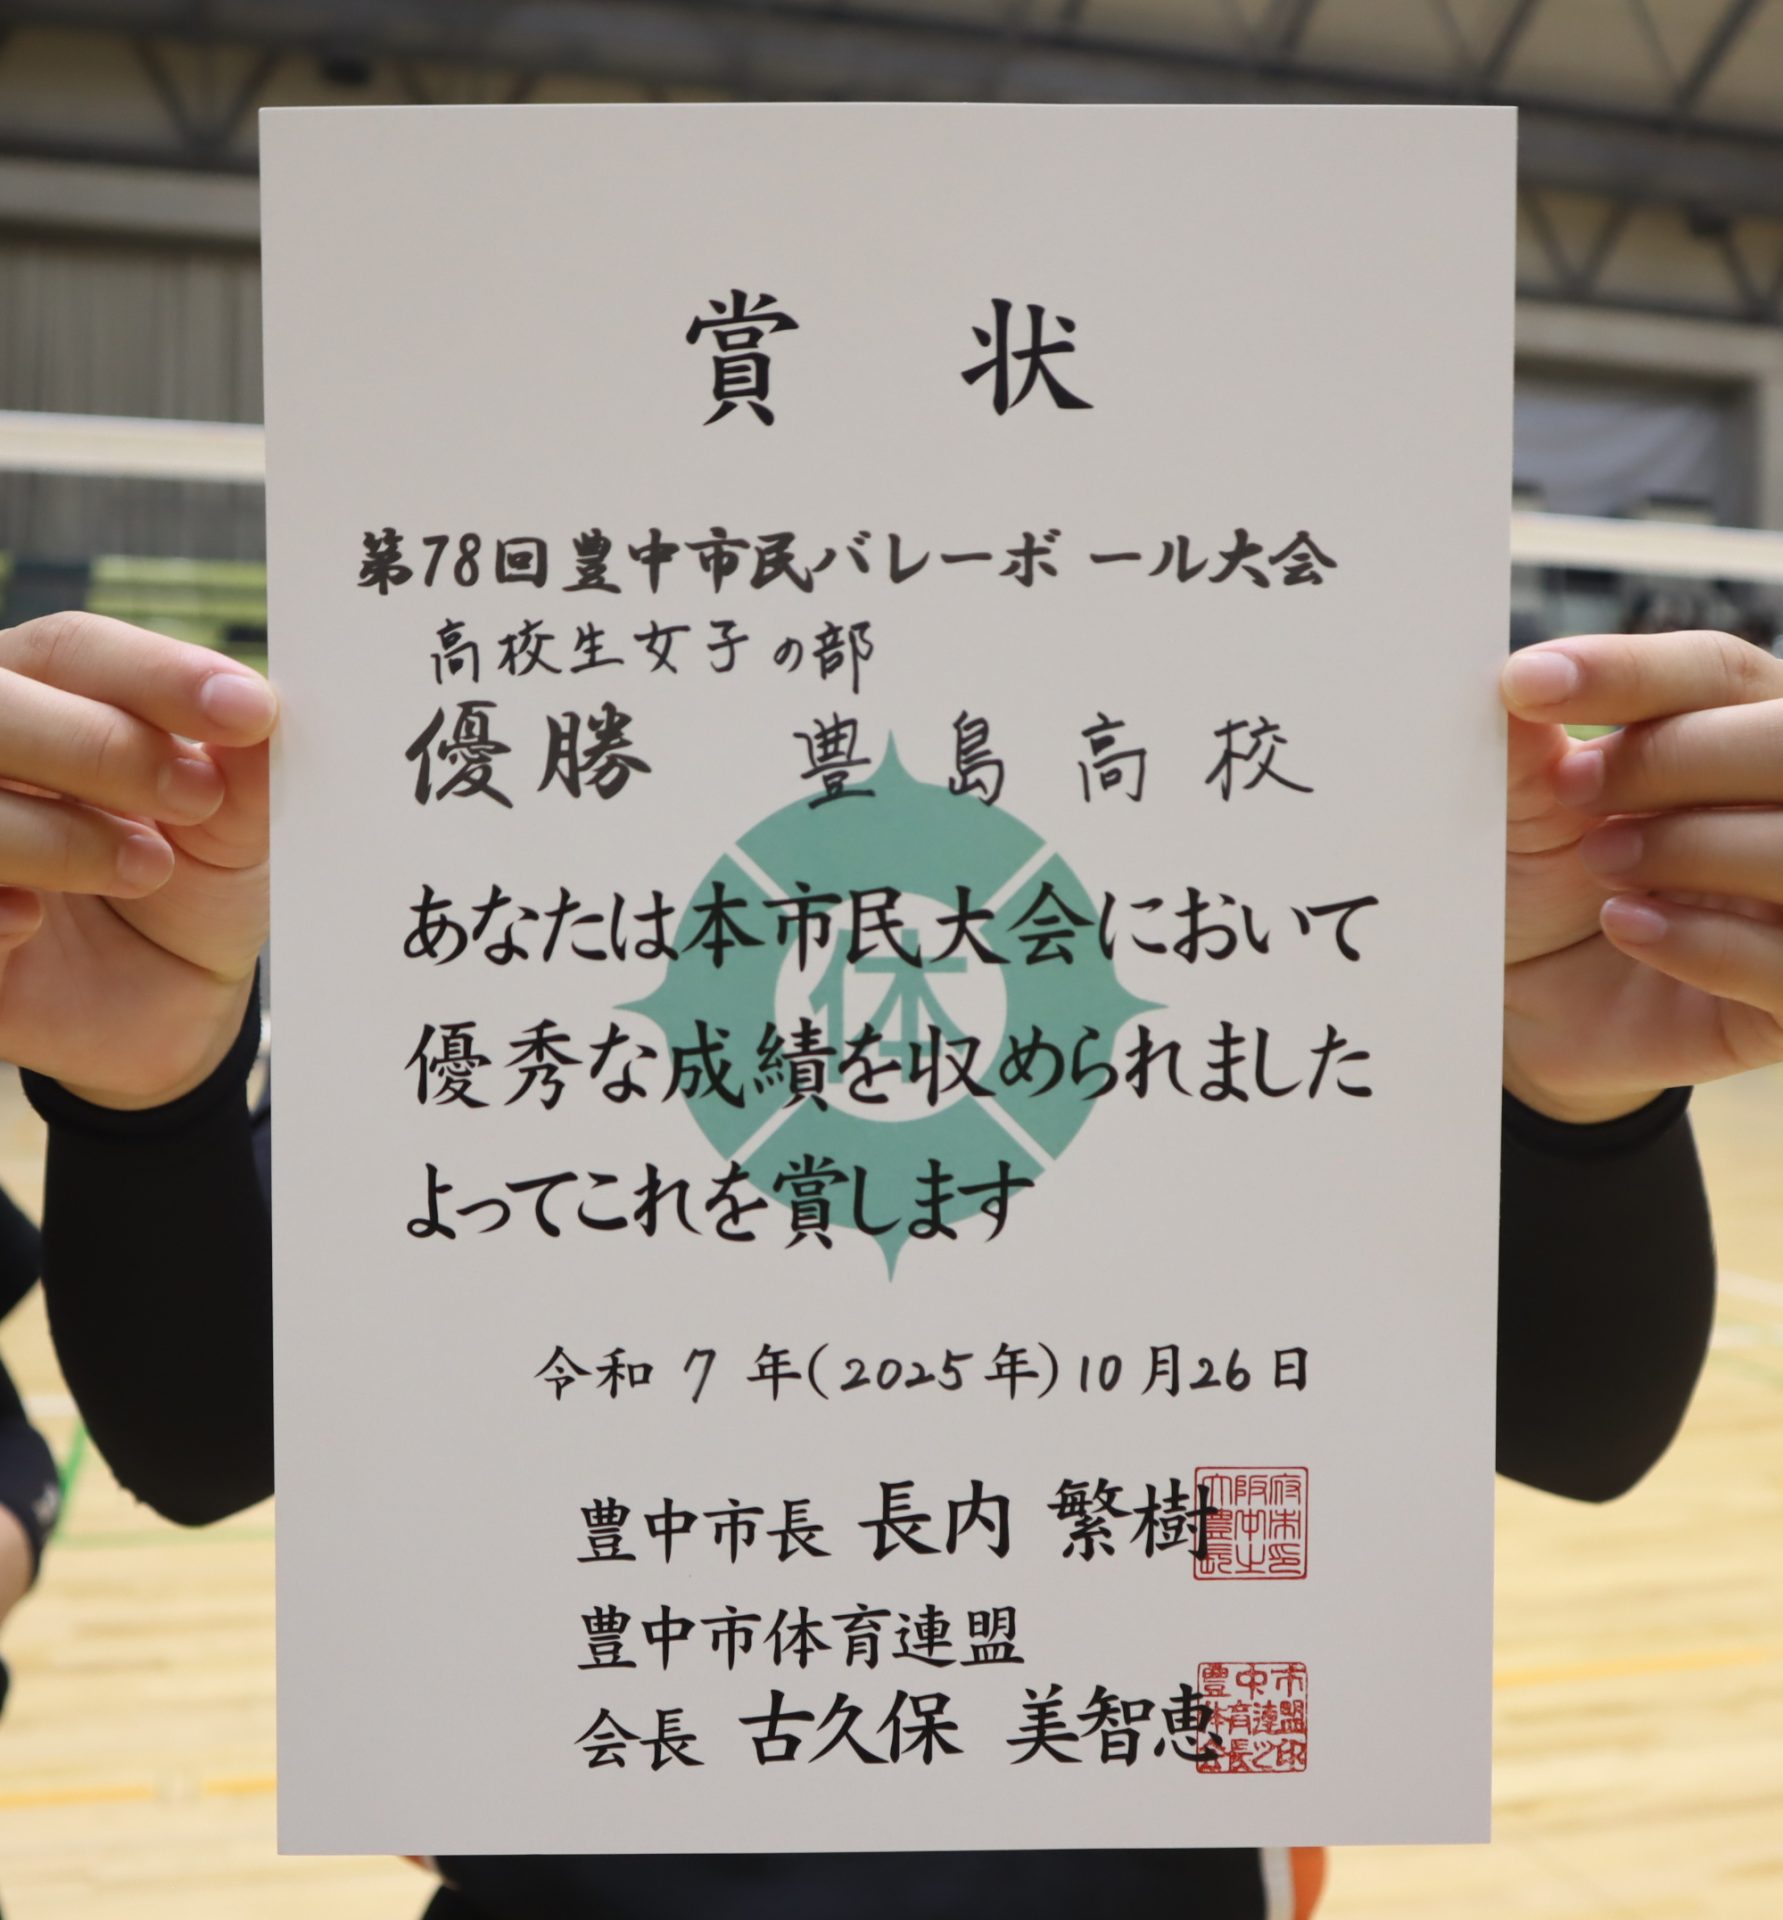 賞状
第78回豊中市民バレーボール大会
高校生女子の部
優勝 豊島高校
体
あなたは本市民大会において
優秀な成績を収められました
よってこれを賞します
令和7年(2025年)10月26日
豊中市長 長内 繁樹
豊中市体育連盟
会長 古久保 美智恵
豊中市
体育連盟
会長之印